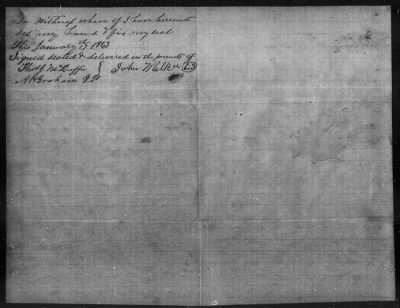 In Witness where of I have hereunto
set my hand & fix my seal
This January 1863
Signed sealed & delivered in the presents of
Thos J McGuffie } John Walker
A W Graham J.P.